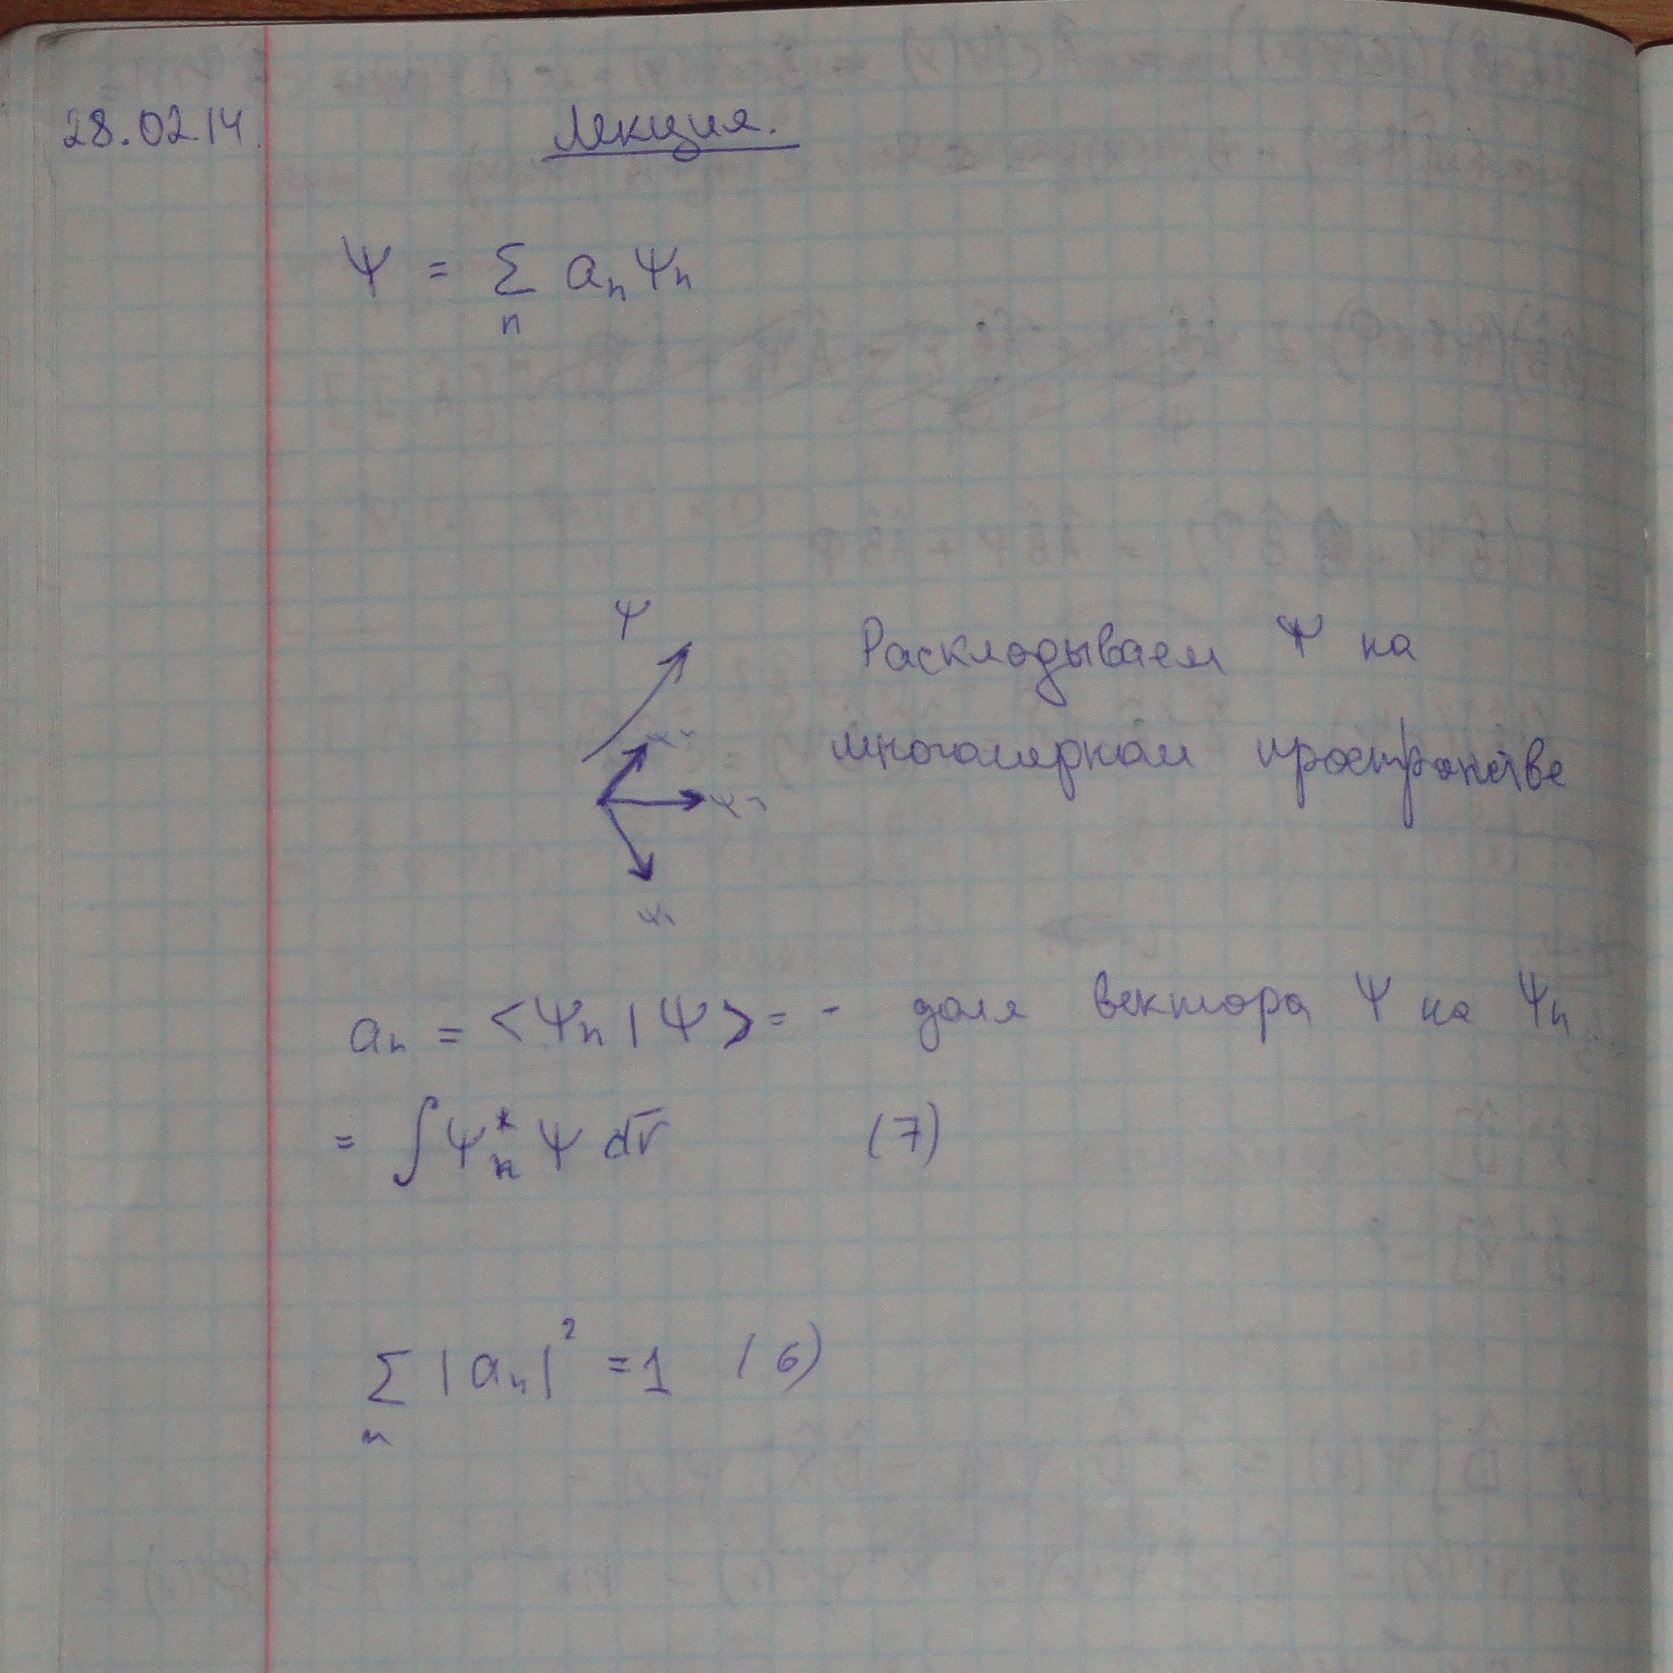 28.02.14.
Лекция.
Ψ = Σ aₙ Ψₙ
n
Ψ
Раскладываем Ψ на
многомерном пространстве
Ψ₁
aₙ = <Ψₙ | Ψ> = - доля вектора Ψ на Ψₙ
= ∫ Ψₙ* Ψ dr̄ (7)
Σ |aₙ|² = 1 (6)
n